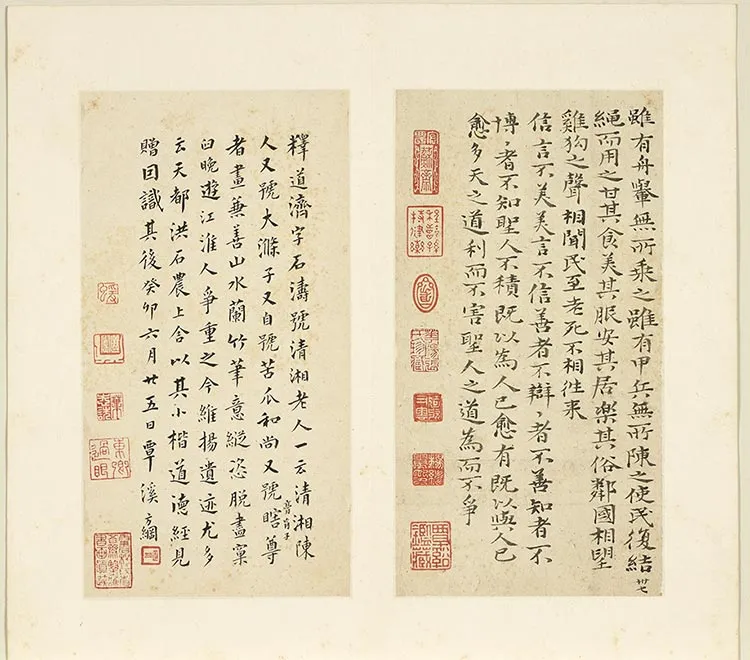 雖有舟轝無所乘之雖有甲兵無所陳之使民復結
卅七
繩而用之甘其食美其服安其居樂其俗鄰國相望
雞狗之聲相聞民至老死不相往來
信言不美美言不信善者不辯〻者不善知者不
博〻者不知聖人不積既以為人己愈有既以與人己
愈多天之道利而不害聖人之道為而不爭
釋道濟字石濤號清湘老人一云清湘陳
人又號大滌子又自號苦瓜和尚又號瞎尊
膏肓子
者畫兼善山水蘭竹筆意縱恣脫盡窠
臼晚遊江淮人爭重之今維揚遺迹尤多
云天都洪石農上舍以其小楷道德經見
贈因識其後癸卯六月廿五日覃溪方綱
東卿過眼